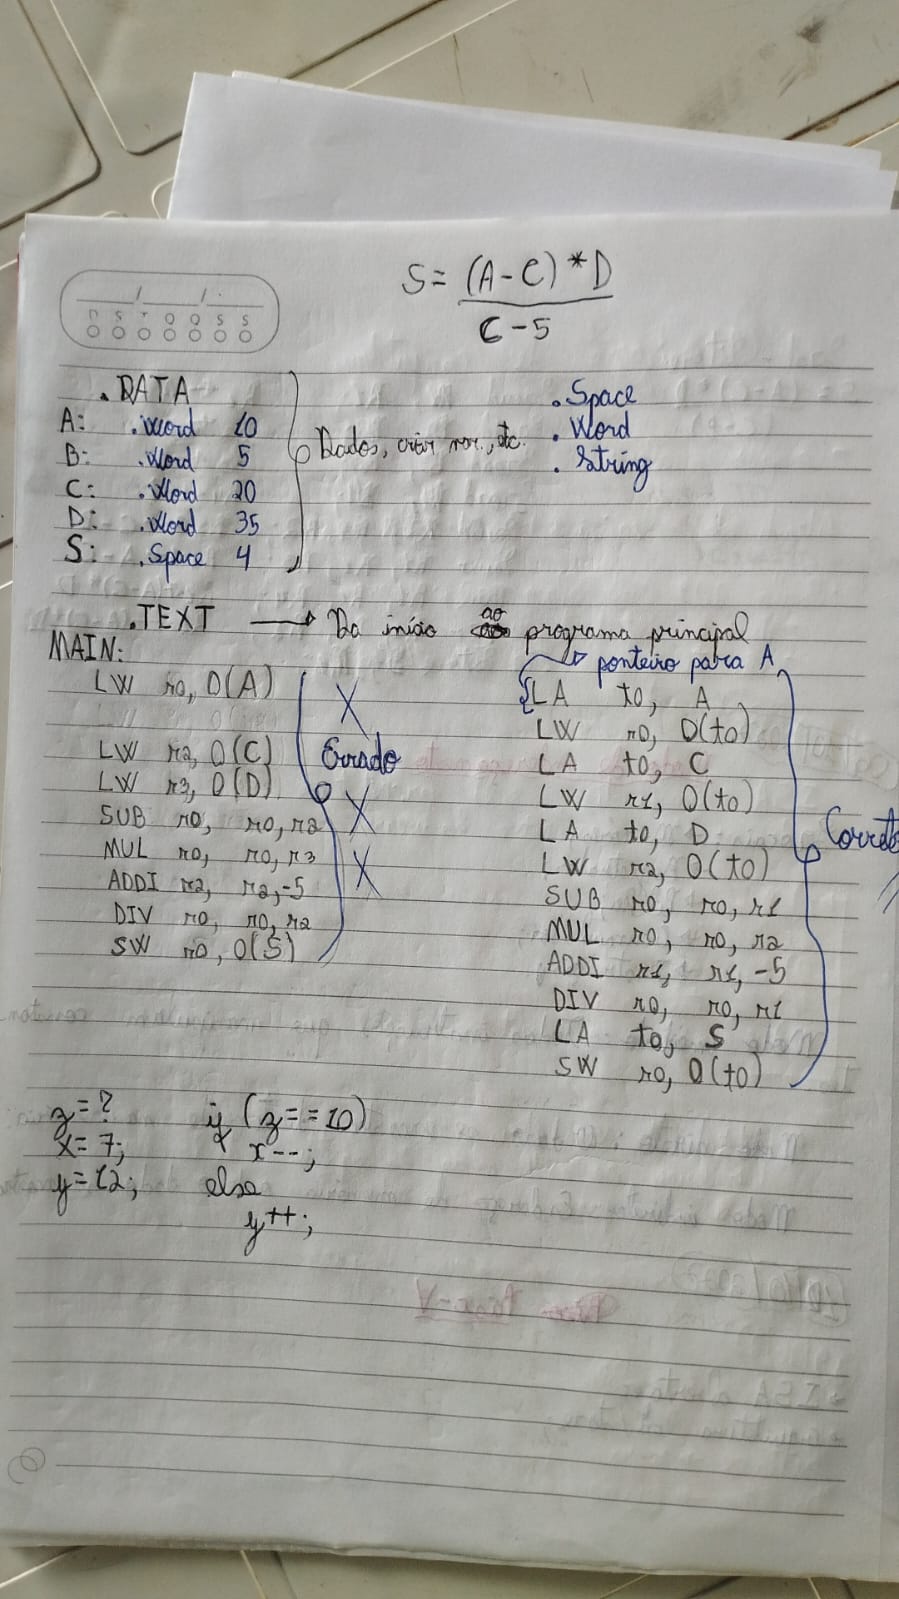 S = (A - C) * D
C - 5
D S T Q Q S S
.DATA
A: .Word 10
B: .Word 5
C: .Word 20
D: .Word 35
S: .Space 4
Dados, criar var., etc.
. Space
. Word
. String
.TEXT → Da início ao programa principal
MAIN:
LW r0, 0(A)
LW r2, 0(C)
LW r3, 0(D)
SUB r0, r0, r2
MUL r0, r0, r3
ADDI r2, r2, -5
DIV r0, r0, r2
SW r0, 0(S)
X
Errado
X
X
ponteiro para A
LA t0, A
LW r0, 0(t0)
LA t0, C
LW r1, 0(t0)
LA t0, D
LW r2, 0(t0)
SUB r0, r0, r1
MUL r0, r0, r2
ADDI r1, r1, -5
DIV r0, r0, r1
LA t0, S
SW r0, 0(t0)
Correto
z = ?
x = 7;
y = 12;
if (z == 10)
x--;
else
y++;